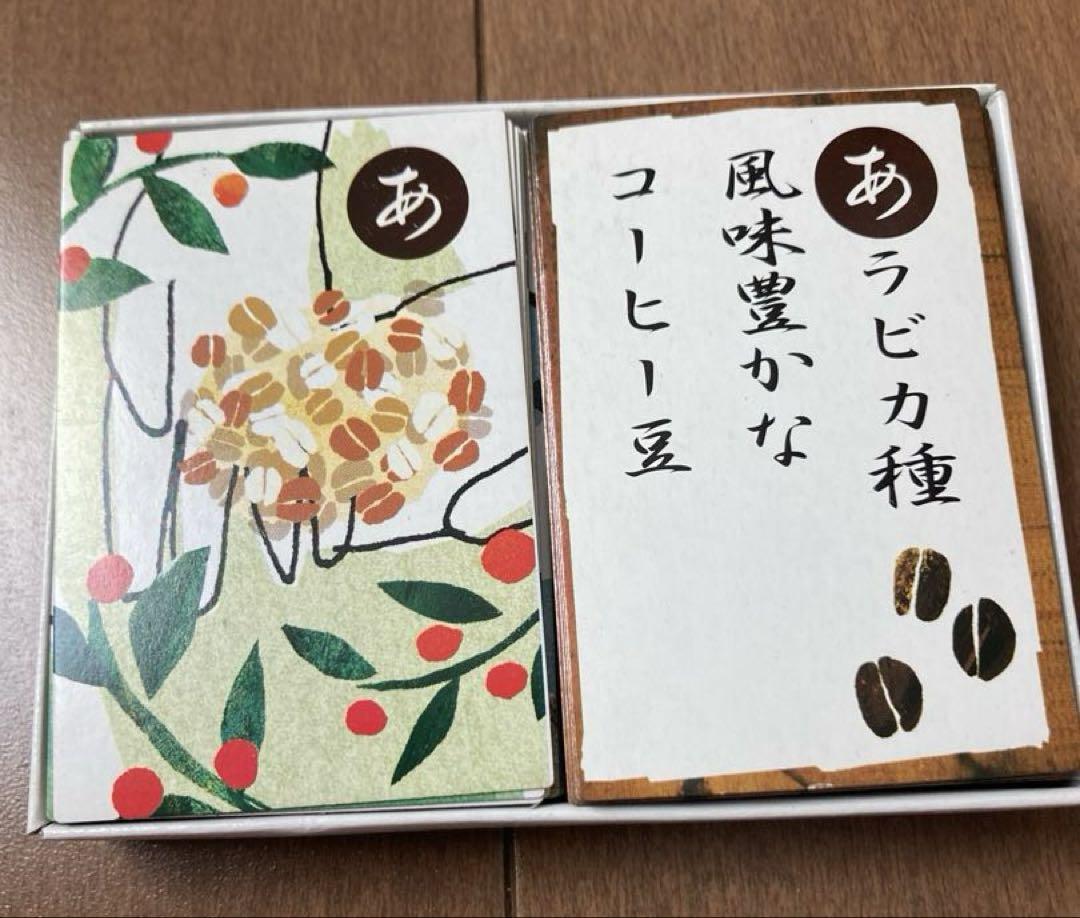 あ
あラビカ種
風味豊かな
コーヒー豆